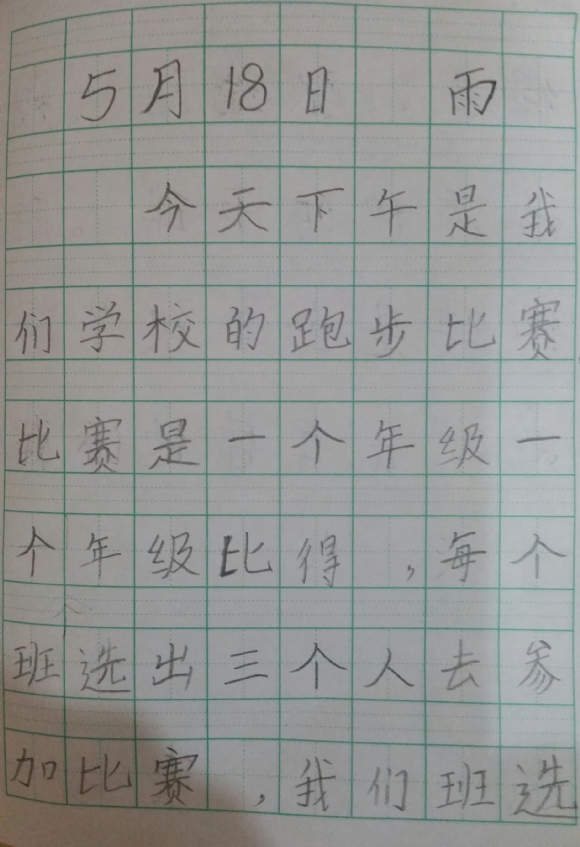 5月18日 雨
今天下午是我
们学校的跑步比赛
比赛是一个年级一
个年级比得,每个
班选出三个人去参
加比赛,我们班选